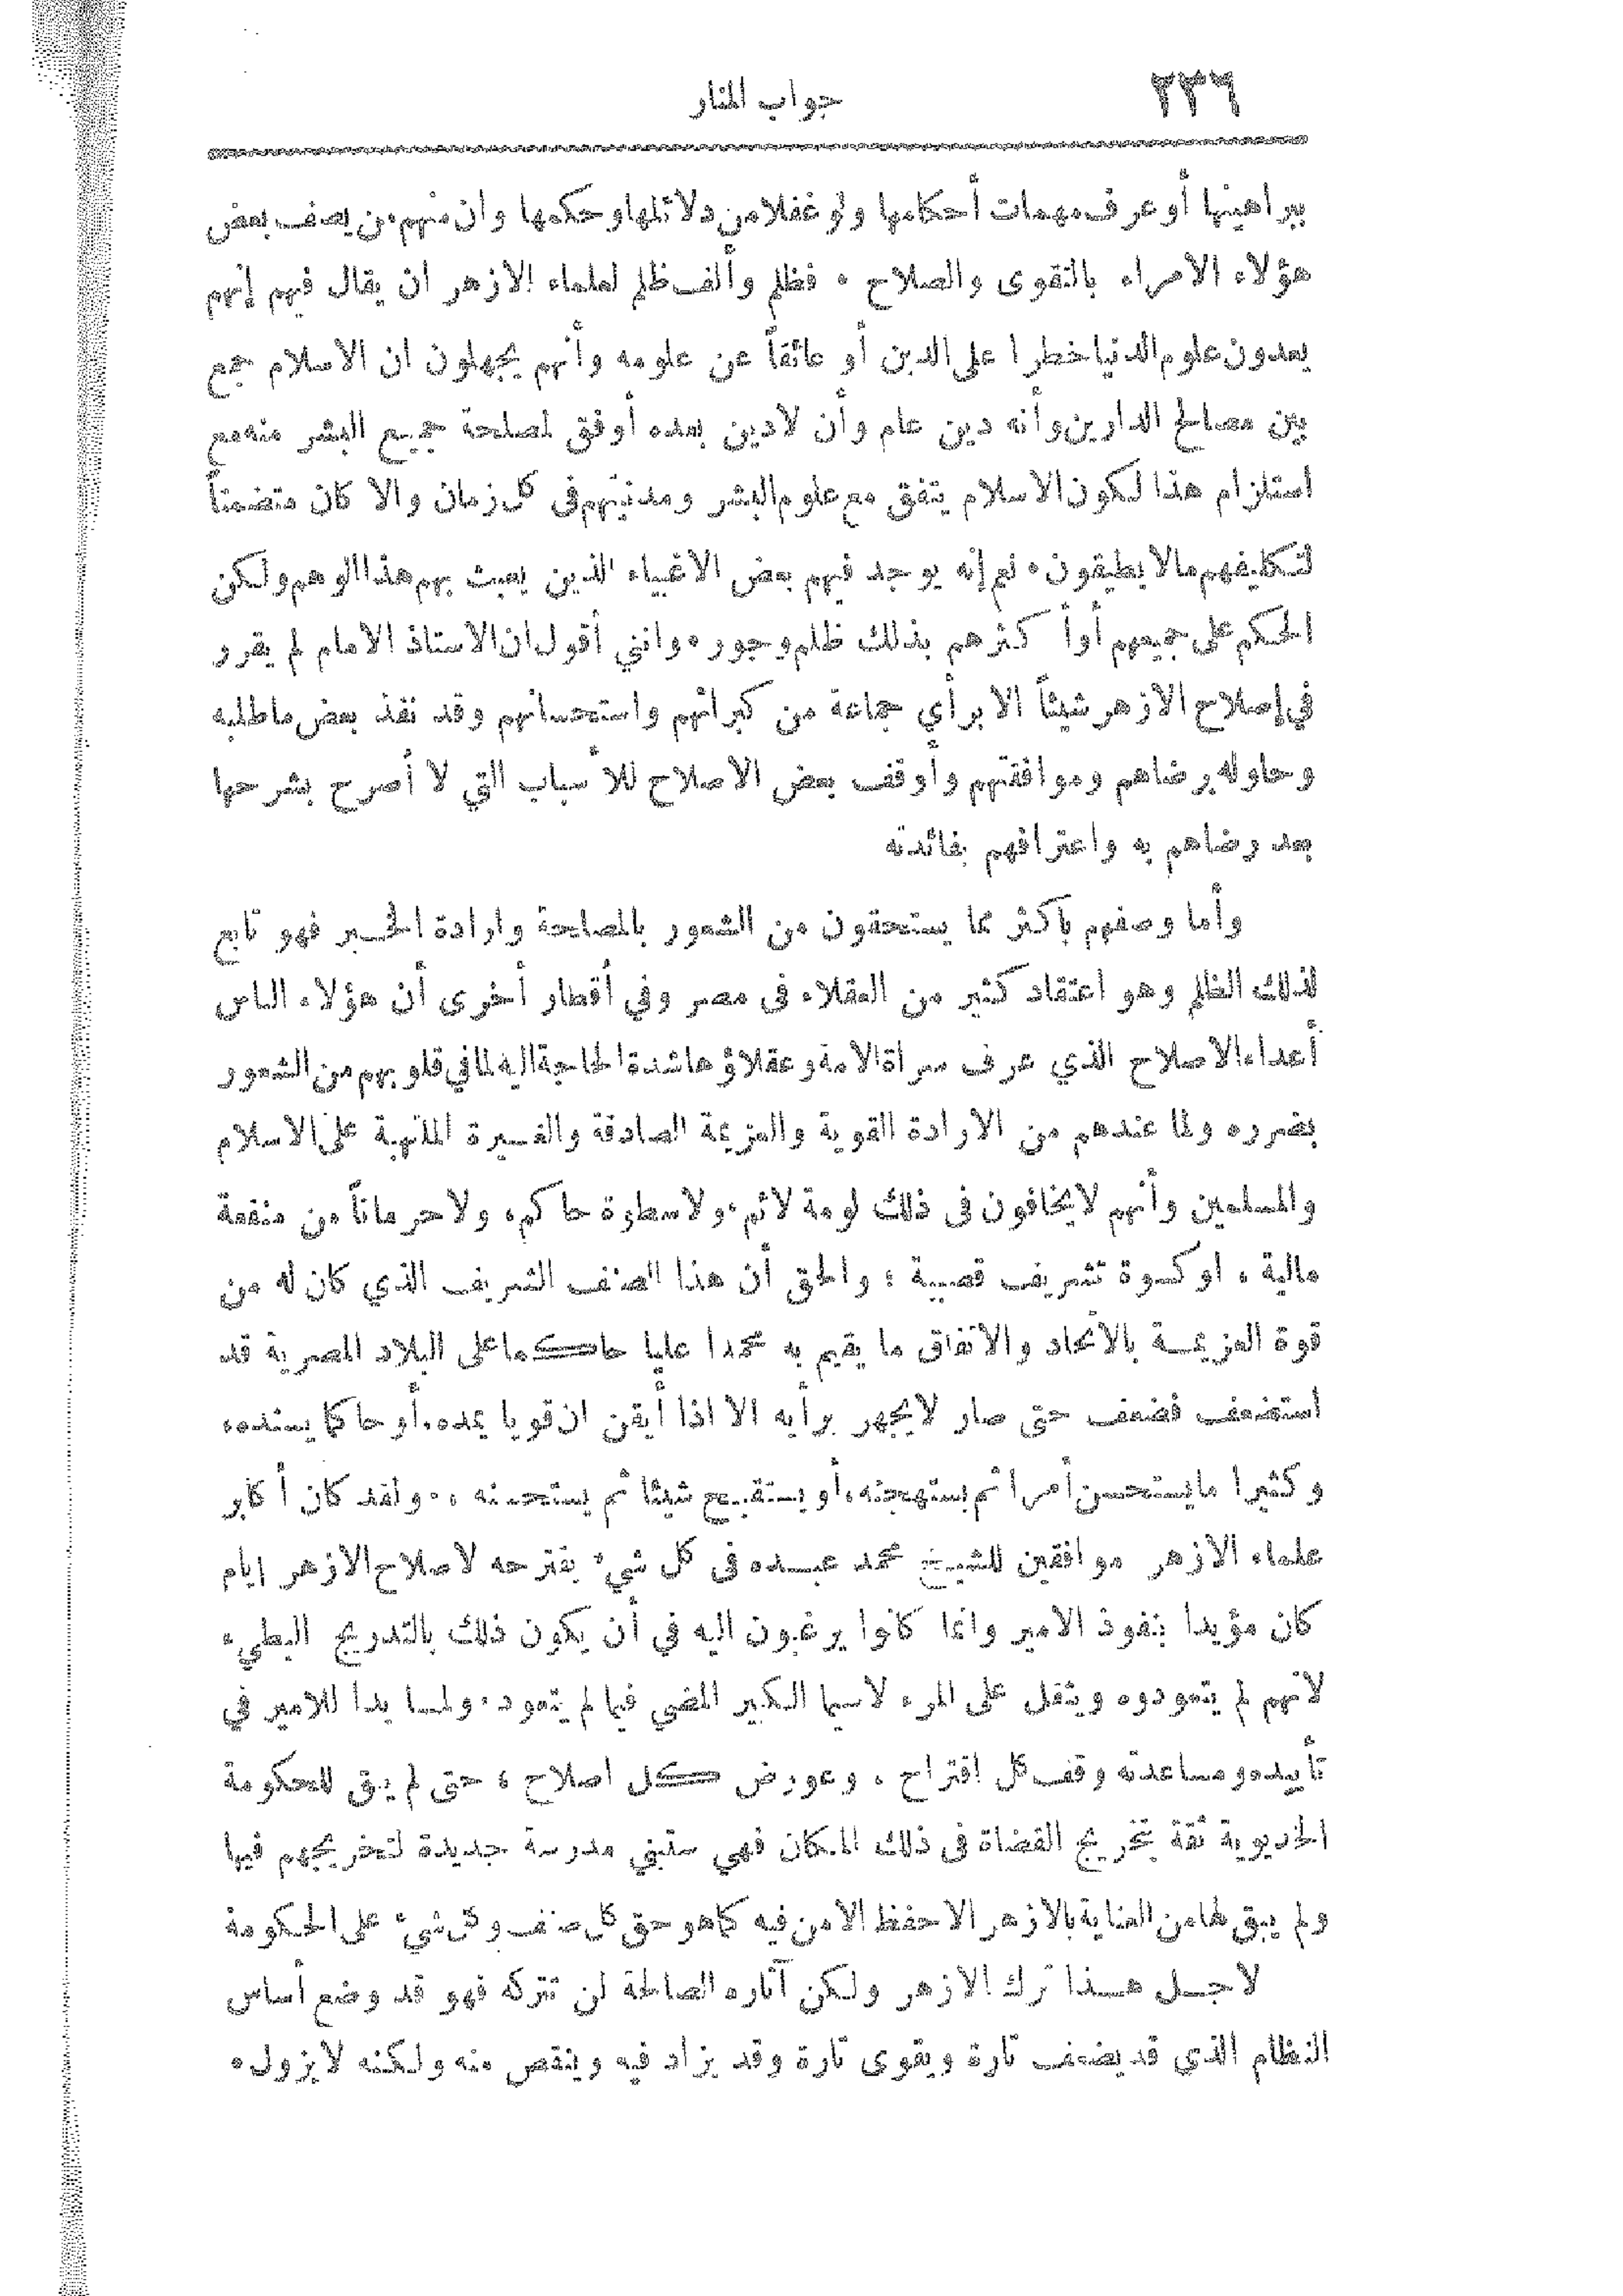 ٢٣٦
جواب المنار
ببراهينها أو عرف مهمات أحكامها ولو غفلا من دلائلها وحكمها وان منهم من يصف بعض
هؤلاء الامراء بالتقوى والصلاح . فظلم وألف ظلم لعلماء الازهر ان يقال فيهم إنهم
يعدون علوم الدنيا خطرا على الدين أو عائقاً عن علومه وأنهم يجهلون ان الاسلام جمع
بين مصالح الدارين وأنه دين عام وأن لا دين بعده أوفق لمصلحة جميع البشر منه مع
استلزام هذا لكون الاسلام يتفق مع علوم البشر ومدنيتهم فى كل زمان والا كان متضمناً
لتكليفهم مالا يطيقون . نعم إنه يوجد فيهم بعض الاغبياء الذين يعبث بهم هذا الوهم ولكن
الحكم على جميعهم أو أكثرهم بذلك ظلم وجور . وانني أقول ان الاستاذ الامام لم يقرر
في إصلاح الازهر شيئاً الا برأي جماعة من كبرائهم واستحسانهم وقد نفذ بعض ماطلبه
وحاوله برضاهم وموافقتهم وأوقف بعض الاصلاح للأسباب التي لا أصرح بشرحها
بعد رضاهم به واعترافهم بفائدته
وأما وصفهم بأكثر مما يستحقون من الشعور بالمصلحة وارادة الخــير فهو تابع
لذلك الظلم وهو اعتقاد كثير من العقلاء فى مصر وفي أقطار أخرى أن هؤلاء الناس
أعداء الاصلاح الذي عرف سراة الامة وعقلاؤها شدة الحاجة اليه لما في قلوبهم من الشعور
بضرره ولما عندهم من الارادة القوية والعزيمة الصادقة والغــيرة الملتهبة على الاسلام
والمسلمين وأنهم لا يخافون فى ذلك لومة لائم، ولا سطوة حاكم، ولا حرماناً من منفعة
مالية ، او كسوة تشريف قصبية ؛ والحق أن هذا الصنف الشريف الذي كان له من
قوة العزيمــة بالاتحاد والاتفاق ما يقيم به محمدا عليا حاكما على البلاد المصرية قد
استضعف فضعف حتى صار لا يجهر برأيه الا اذا أيقن ان قويا يمده، أو حاكما يسنده،
وكثيرا ما يستحسن أمرا ثم يستهجنه، أو يستقبح شيئا ثم يستحسنه ، . ولقد كان أكابر
علماء الازهر موافقين للشيخ محمد عبــده فى كل شيء يقترحه لاصلاح الازهر ايام
كان مؤيدا بنفوذ الامير وانما كانوا يرغبون اليه في أن يكون ذلك بالتدريج البطيء
لانهم لم يتعودوه ويثقل على المرء لاسيما الكبير المضي فيما لم يتعود . ولمــا بدا للامير في
تأييده ومساعدته وقف كل اقتراح ، وعورض كل اصلاح ، حتى لم يبق للحكومة
الخديوية ثقة بتخريج القضاة فى ذلك المكان فهي ستبني مدرسة جديدة لتخريجهم فيها
ولم يبق لها من العناية بالازهر الا حفظ الامن فيه كما هو حق كل صنف وكل شيء على الحكومة
لاجــل هــذا ترك الازهر ولكن آثاره الصالحة لن تتركه فهو قد وضع أساس
النظام الذي قد يضعف تارة ويقوى تارة وقد يزاد فيه وينقص منه ولكنه لا يزول .